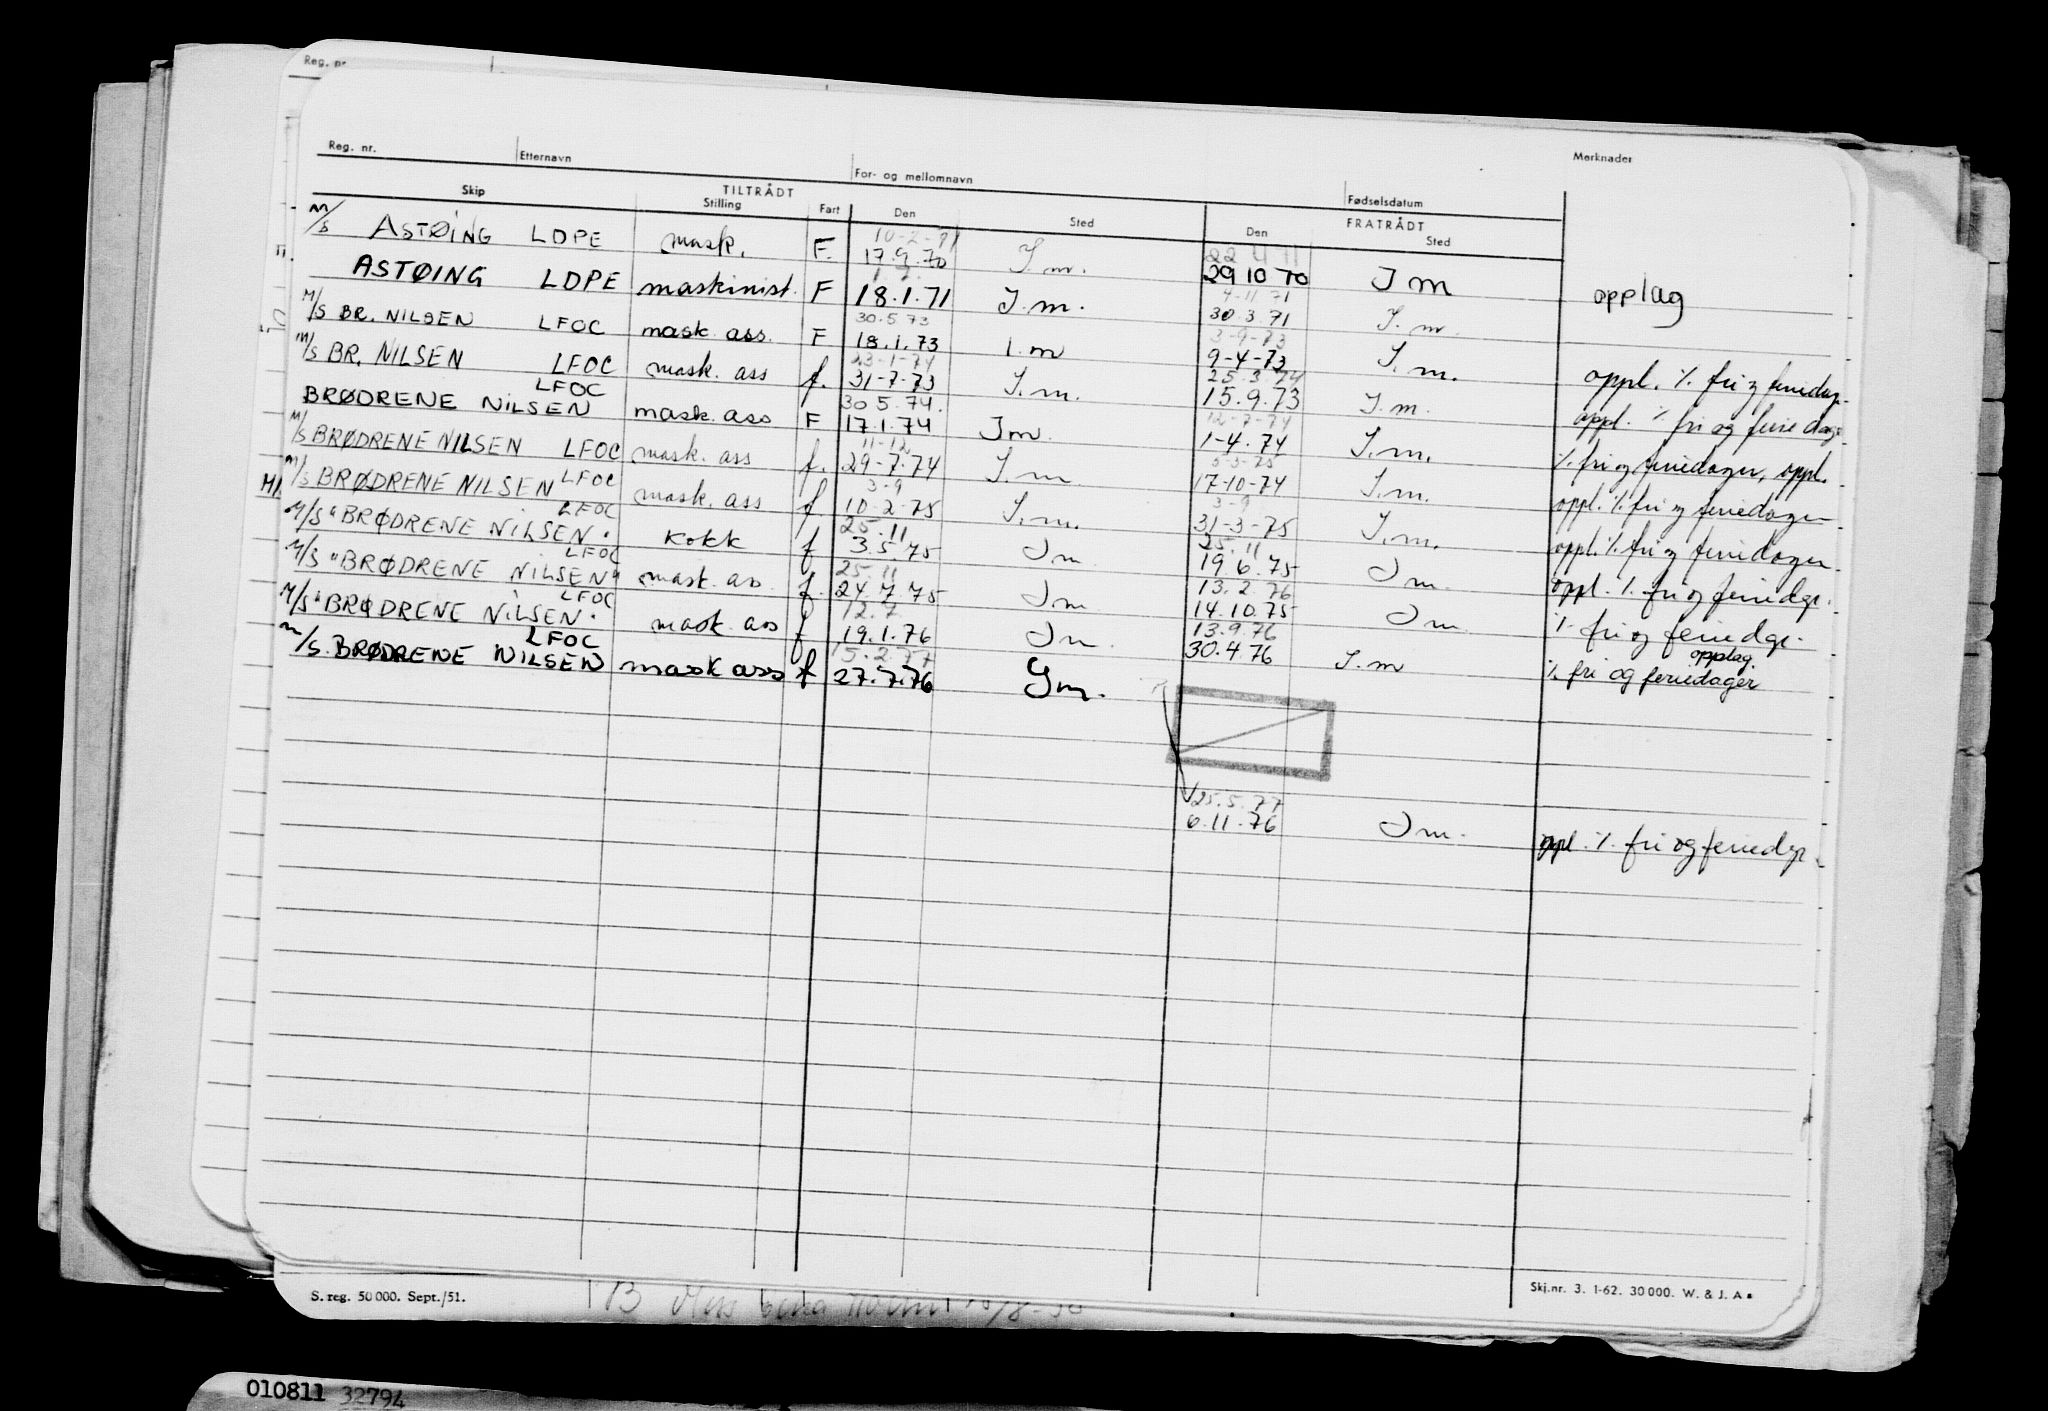 Reg. nr.
Reg. nr. Etternavn For- og mellomnavn Fødselsdatum Merknader
TILTRÅDT FRATRÅDT
Skip Stilling Fart Den Sted Den Sted
10-2-71 22 4 71
M/S ASTØING LDPE mask. F. 17.9.70 I.m. 29 10 70 I m opplag
4-11 71
ASTØING LDPE maskinist. F 18.1.71 I.m. 30.3.71 I.m.
30.5.73 3-9-73
M/S BR. NILSEN LFOC mask. ass. F 18.1.73 I.m 9-4-73 I.m. oppl. %. fri og feriedgr.
23-1-74 25.3.74
M/S BR. NILSEN LFOC mask. ass f. 31-7-73 I.m. 15.9.73 I.m. oppl. % fri og feriedager
LFOC 30 5.74. 12-7-74
BRØDRENE NILSEN mask. ass F 17.1.74 Im. 1-4.74 I.m. % fri og feriedager, oppl.
11-12 5-3-75
M/S BRØDRENE NILSEN LFOC mask. ass f. 29-7.74 I.m. 17-10-74 I.m. oppl. % fri og feriedager
LFOC 3-9 3-9
M/S BRØDRENE NILSEN mask. ass f 10-2-75 I.m. 31-3-75 I.m. oppl. % fri og feriedager
LFOC 25.11 25.11
M/S "BRØDRENE NILSEN. Kokk f 3.5.75 Im 19.6.75 Im. oppl. %. fri og feriedgr.
LFOC 25.11 13.2.76
M/S "BRØDRENE NILSEN" mask. ass. f. 24.7.75 Im 14.10.75 Im. %. fri og feriedgr.
LFOC 12.7 13.9.76 opplag.
M/S "BRØDRENE NILSEN. mask. ass f 19.1.76 Im. 30.4.76 I.m %. fri og feriedager
LFOC 15.2.77
M/S. BRØDRENE NILSEN mask ass f 27.7.76 Im.
25.5.77
6.11.76 Im. oppl. %. fri og feriedgr.
S. reg. 50 000. Sept./51. Skj.nr. 3. 1-62. 30 000. W. & J. A
B
010811 32794